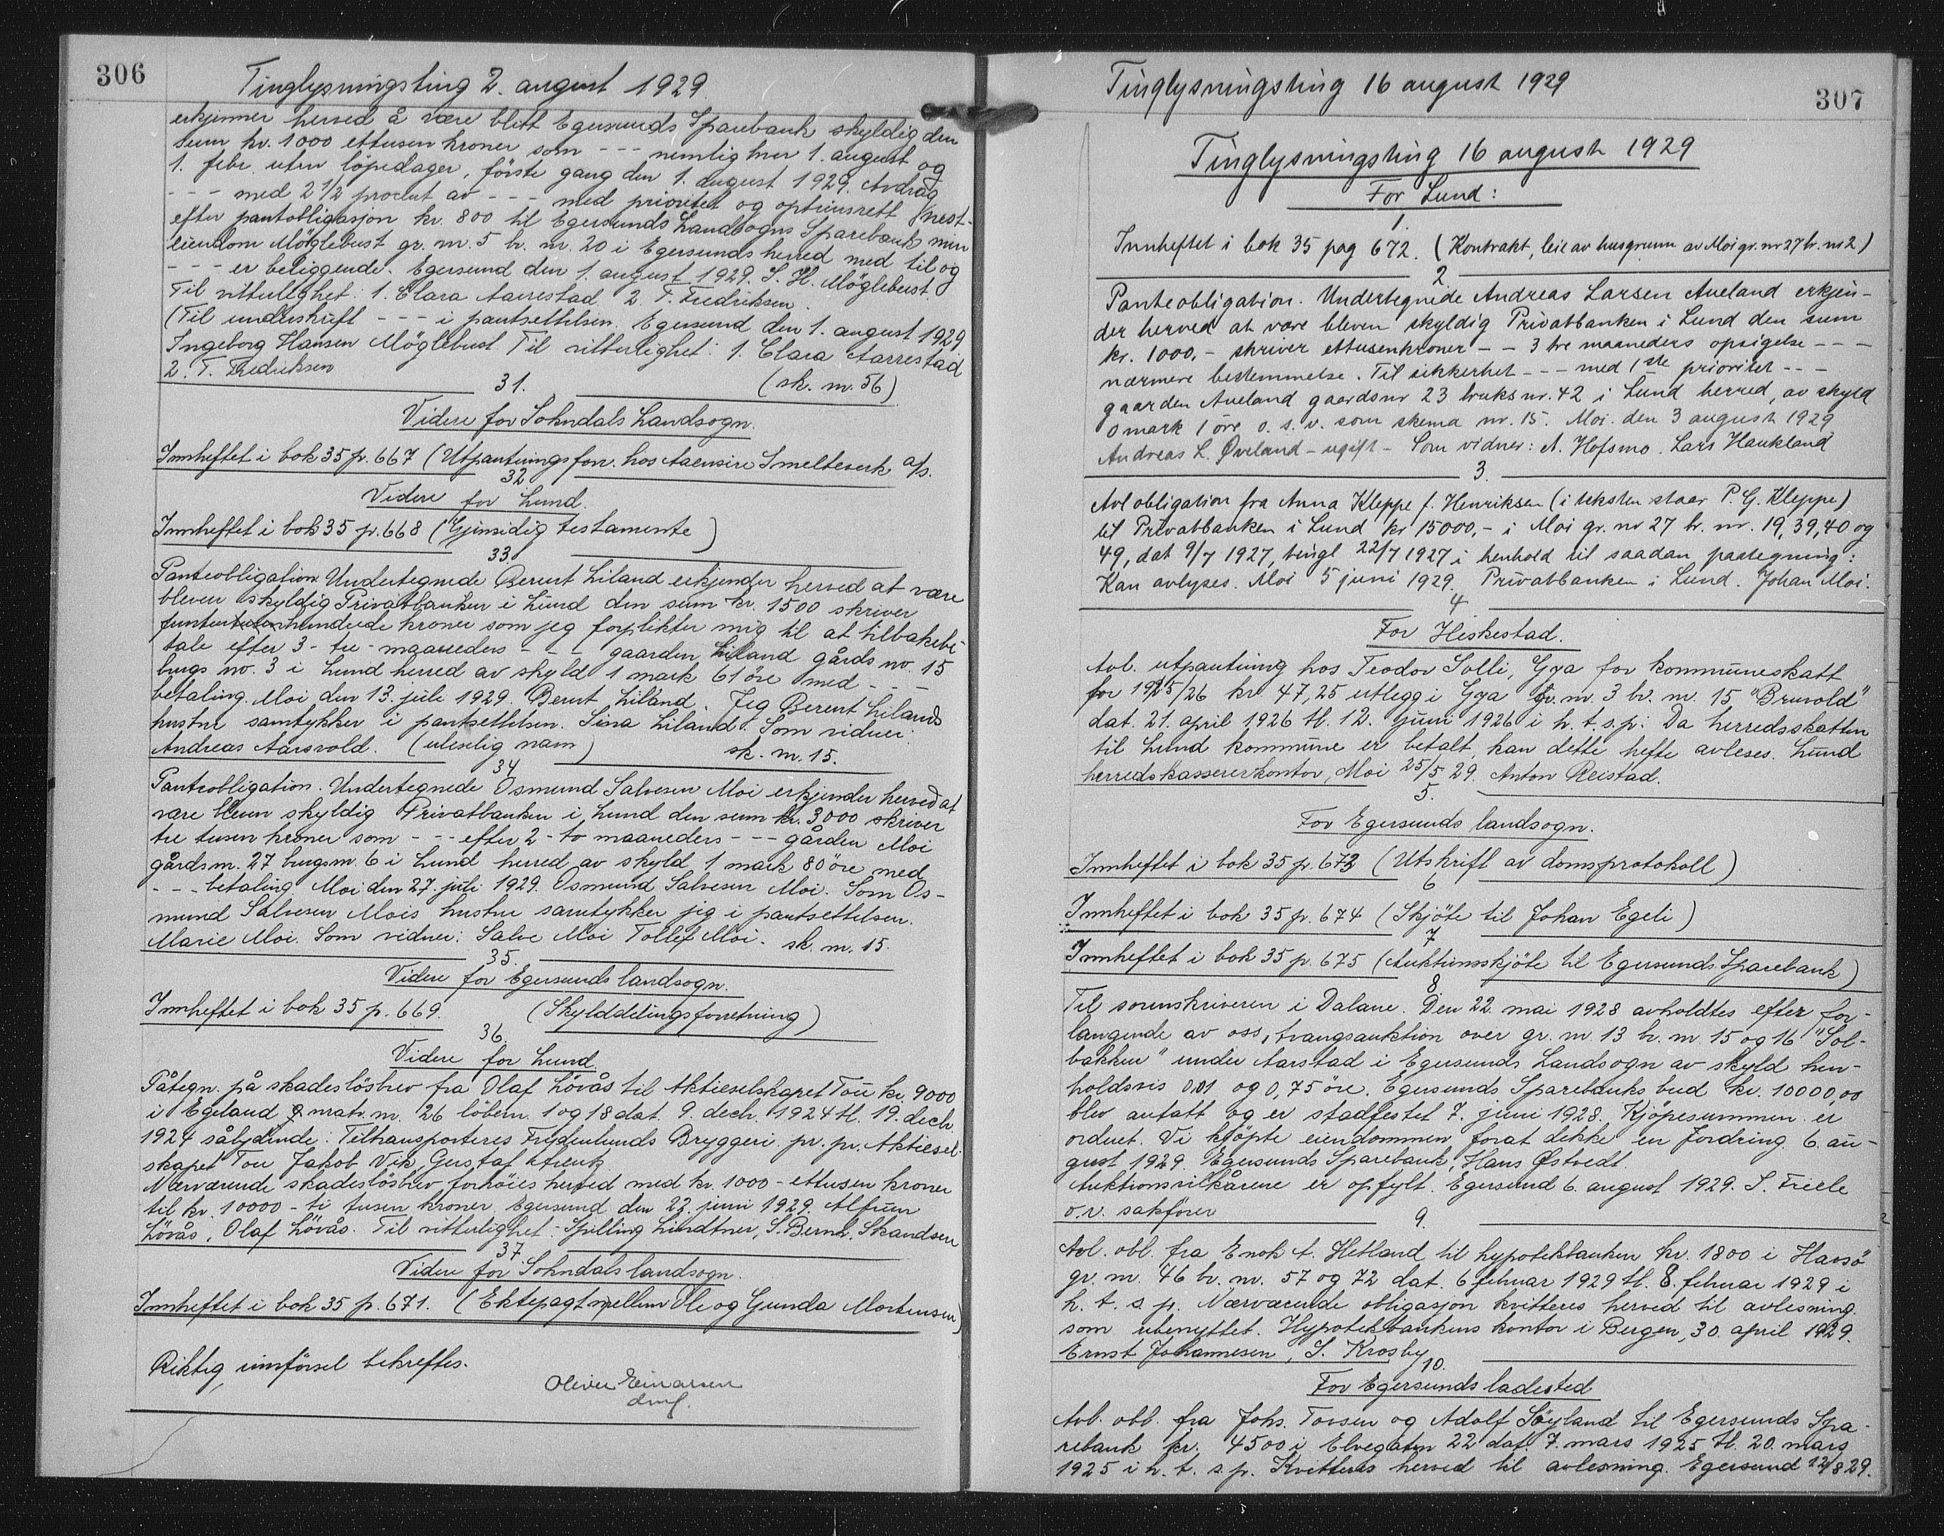 306
Tinglysningsting 2. august 1929
erkjenner herved å være blitt Egersunds Sparebank skyldig den
sum kr. 1000 ettusen kroner som --- nemlig hver 1. august og
1. febr. uten löpedager, förste gang den 1. august 1929. Avdrag
--- med 2 1/2 procent av --- med prioritet og optrinsrett nest-
efter pantobligasjon kr. 800 til Egersunds Landsogns Sparebank min
eiendom Möglebust gr. nr. 5 br. nr. 20 i Egersunds herred med til og
--- er beliggende. Egersund den 1. august 1929. S. H. Möglebust
Til vitterlighet: 1. Clara Aarrestad 2. T. Fredriksen.
(Til underskrift --- i pantsettelsen. Egersund den 1. august 1929
Ingeborg Hansen Möglebust Til vitterlighet: 1. Clara Aarrestad
2. T. Fredriksen (sk. nr. 56)
31.
Videre for Sohndals Landsogn.
Innheftet i bok 35 p. 667 (Utpantningsforr. hos Aaensire Smelteverk A/s.
32
Videre for Lund.
Innheftet i bok 35 p. 668 (Gjensidig testamente)
33
Panteobligation Undertegnede Berent Liland erkjender herved at være
bleven skyldig Privatbanken i Lund den sum kr. 1500 skriver
femtenhundrede kroner som jeg forplikter mig til at tilbakebe-
tale efter 3 - tre - maaneders --- gaarden Liland gårds no. 15
brugs no. 3 i Lund herred av skyld 1 mark 61 öre med ---
betaling. Moi den 13. juli 1929. Bernt Liland. Jeg Berent Lilands
hustru samtykker i pantsettelsen. Sina Liland. Som vidner:
Andreas Aarsvold. (uleselig navn) sk. nr. 15.
34
Panteobligation. Undertegnede Osmund Salvesen Moi erkjender herved at
være bleven skyldig Privatbanken i Lund den sum kr. 3000 skriver
tre tusen kroner som --- efter 2 - to maaneders --- gården Moi
gårdsnr. 27 brugsnr. 6 i Lund herred av skyld 1 mark 80 öre med
--- betaling. Moi den 27. juli 1929. Osmund Salvesen Moi. Som Os-
mund Salvesen Mois hustru samtykker jeg i pantsettelsen.
Marie Moi. Som vidner: Salve Moi Tollef Moi. sk. nr. 15.
35.
Videre for Egersunds landsogn.
Innheftet i bok 35 p. 669. (Skylddelingsforretning)
36.
Videre for Lund
Påtegn. på skadeslösbrev fra Olaf Lövås til Aktieselskapet Tou kr. 9000
i Egeland matr. nr. 26 löbenr. 1 og 18 dat. 9. decbr. 1924 tl. 19. decb.
1924 sålydende: Tiltransporteres Frydenlunds Bryggeri. pr. pr. Aktiesel-
skapet Tou Jakob Vik, Gustaf
Nærværende skadeslösbrev forhöies herved med kr. 1000 - ettusen kroner
til kr. 10000 - ti tusen kroner. Egersund den 22. juni 1929.
Lövås, Olaf Lövås. Til vitterlighet: Spilling Lindtner, S. Bernh. Skandsen
37
Videre for Sohndals landsogn.
Innheftet i bok 35 p. 671. (Ektepagt mellem Ole og Gunda Mortensen)
Riktig innförsel bekreftes.
Oliver Einarsen
dmf.
Tinglysningsting 16 august 1929
307
Tinglysningsting 16 august 1929
For Lund:
1.
Innheftet i bok 35 pag 672. (Kontrakt, leie av husgrunn av Moi gr. nr 27 br. nr 2)
2
Panteobligation. Undertegnede Andreas Larsen Aueland erkjen-
der herved at være bleven skyldig Privatbanken i Lund den sum
kr. 1000,- skriver ettusenkroner -- 3 tre maaneders opsigelse ---
nærmere bestemmelse. Til sikkerhet --- med 1ste prioritet ---
gaarden Aueland gaardsnr 23 bruksnr. 42 i Lund herred, av skyld
0 mark 1 öre o. s. v. som skema nr. 15. Moi. den 3 august 1929
Andreas L. Øveland - ugift - Som vidner: A. Hofsmo. Lars Haukland
3.
Avl obligation fra Anna Kleppe f. Henriksen (i teksten staar P. G. Kleppe)
til Privatbanken i Lund kr 15000,- i Moi gr. nr 27 br. nr. 19, 39, 40 og
49, dat 9/7 1927, tingl 22/7 1927 i henhold til saadan paategning:
Kan avlyses. Moi 5 juni 1929. Privatbanken i Lund. Johan Moi.
4
For Heskestad.
Avl. utpantning hos Teodor Solli, Gya for kommuneskatt
for 1925/26 kr. 47,25 utlegg i Gya gr. nr. 3 br. nr. 15 "Bruvold"
dat. 21. april 1926 tl. 12. juni 1926 i h. t. s. p: Da herredsskatten
til Lund kommune er betalt, kan dette hefte avleses. Lund
herredskassererkontor, Moi 25/5 29. Anton Reistad.
5.
For Egersunds landsogn.
Innheftet i bok 35 p. 673 (Utskrift av domsprotokoll)
6
Innheftet i bok 35 p. 674 (Skjöte til Johan Egeli)
7
Innheftet i bok 35 p. 675 (Auktionsskjöte til Egersunds Sparebank)
8
Til sorenskriveren i Dalane. Den 22. mai 1928 avholdtes efter for-
langende av oss, tvangsauktion over gr. nr 13 br. nr. 15 og 16 "Sol-
bakken" under Aarstad i Egersunds Landsogn av skyld hen-
holdsvis 0,01 og 0,75 öre. Egersunds Sparebanks bud kr. 10000,00
blev antatt og er stadfestet 7. juni 1928. Kjöpesummen er
ordnet. Vi kjöpte eiendommen forat dekke en fordring. 6. au-
gust 1929. Egersunds Sparebank, Hans Østvedt.
Auktionsvilkårene er opfylt. Egersund 6. august 1929. S. Feele
o.r. sakförer
9.
Avl. obl. fra Enok t. Hetland til hypotekbanken kr. 1800 i Havsö
gr. nr. 46 br. nr. 57 og 72 dat. 6 februar 1929 tl. 8. februar 1929 i
h. t. s. p. Nærværende obligasjon kvitteres herved til avlesning
som ubenyttet. Hypotekbankens kontor i Bergen, 30. april 1929.
Ernst Johannesen, S. Krosby
10.
For Egersunds ladested
Avl. obl. fra Johs. Tovsen og Adolf Söyland til Egersunds Spa-
rebank kr. 4500 i Elvegaten 22 dat. 7. mars 1925 tl. 20. mars
1925 i h. t. s. p. Kvitteres herved til avlesning. Egersund 12/8 29.